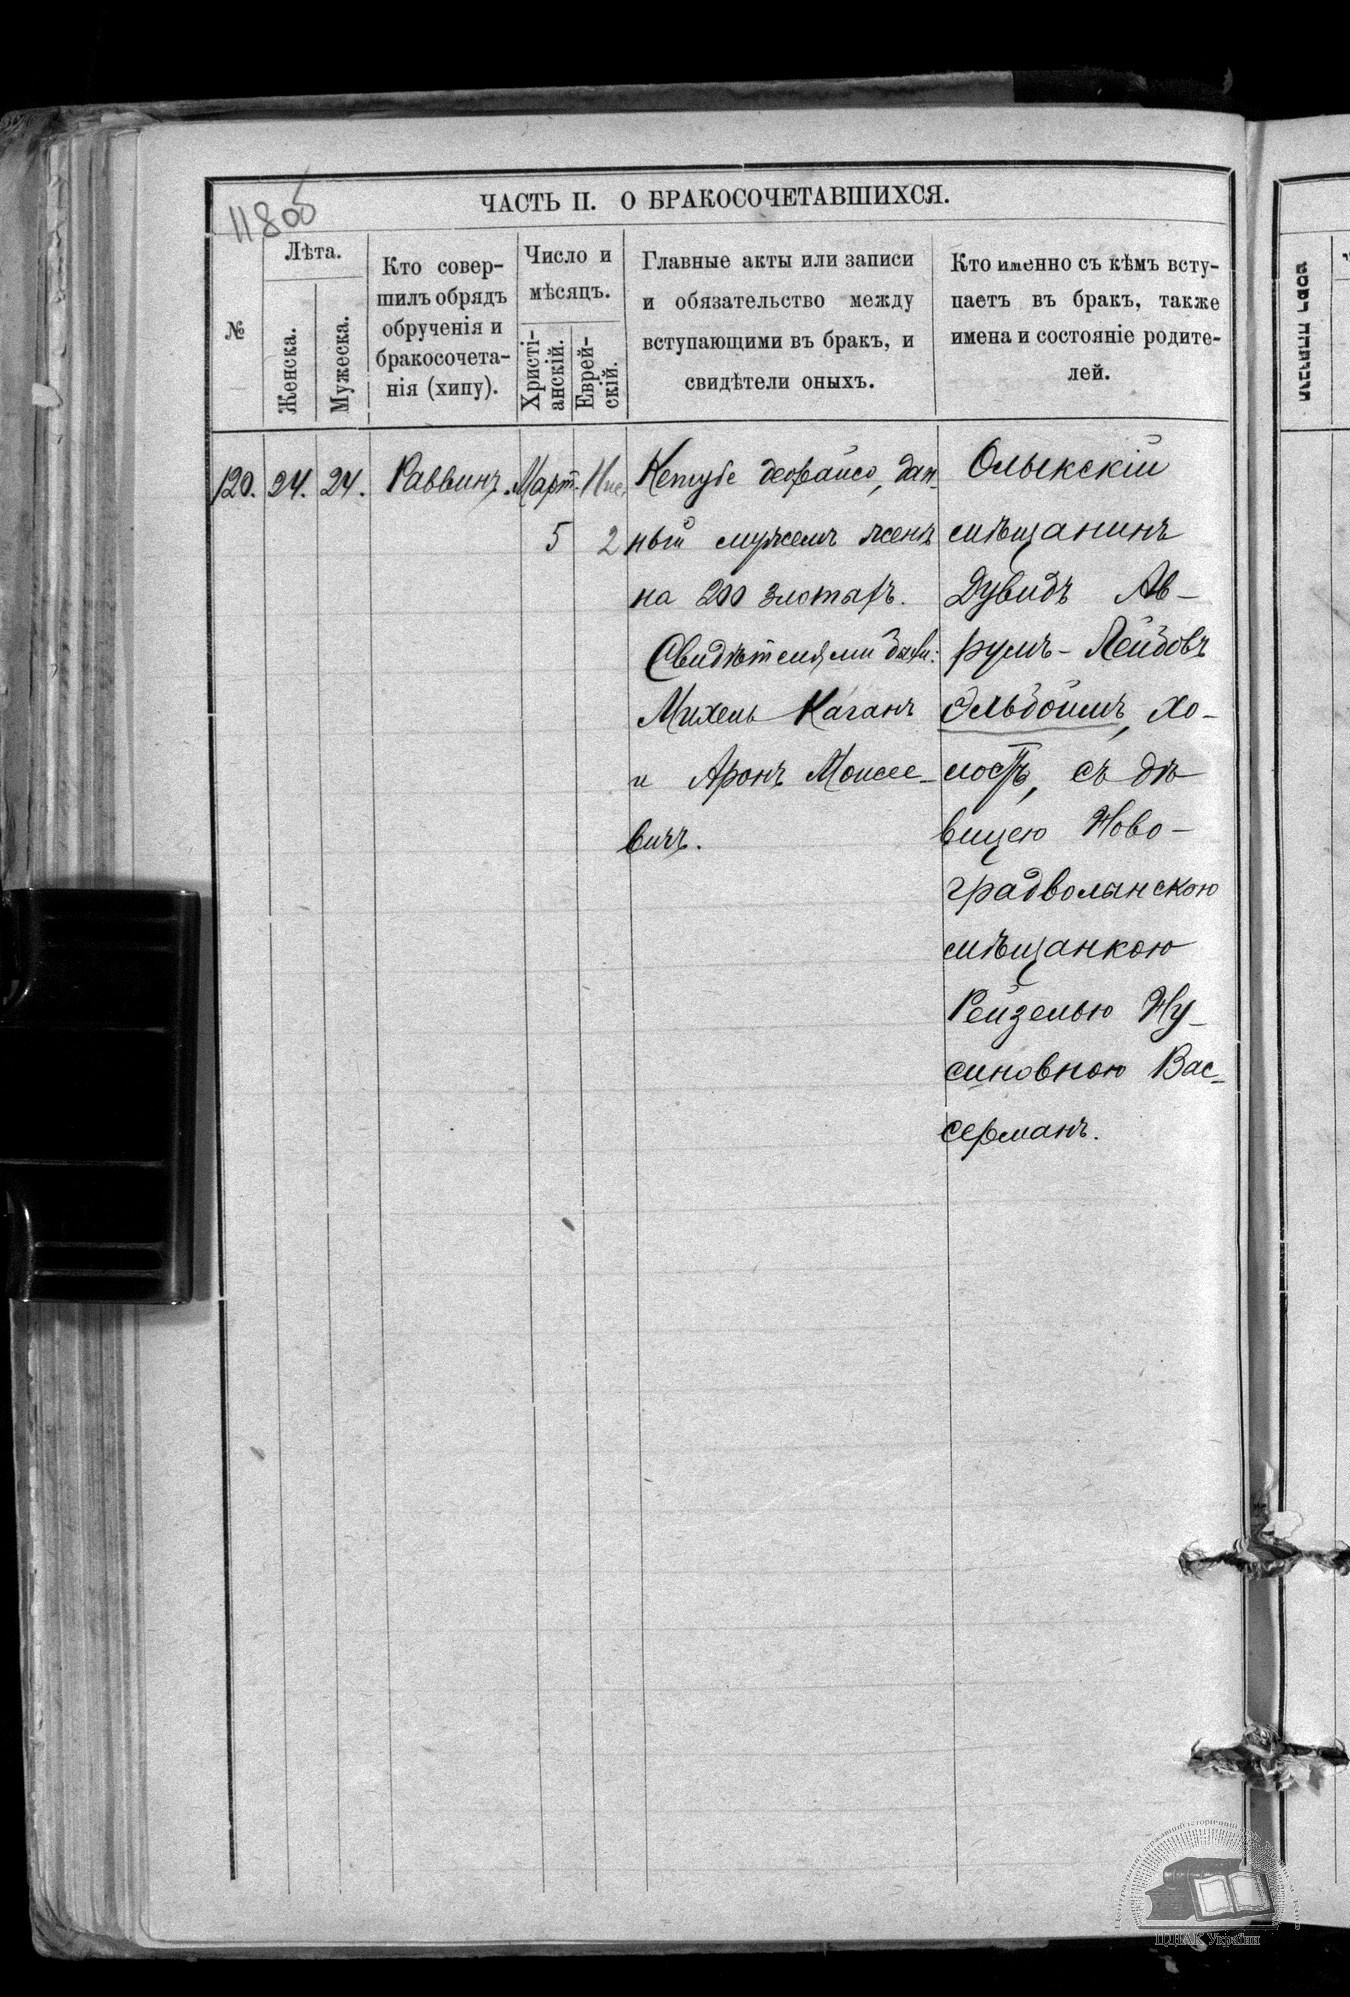 1180б
ЧАСТЬ II. О БРАКОСОЧЕТАВШИХСЯ.
№
Лѣта.
Женска.
Мужеска.
Кто совер-
шилъ обрядъ
обрученія и
бракосочета-
нія (хипу).
Число и
мѣсяцъ.
Христі-
анскій.
Еврей-
скій.
Главные акты или записи
и обязательство между
вступающими въ бракъ, и
свидѣтели оныхъ.
Кто именно съ кѣмъ всту-
паетъ въ бракъ, также
имена и состояніе родите-
лей.
120. 24. 24. Раввинъ. Март. Нис.
5 2
Кетубе деорайсо, дан-
ный мужемъ женѣ
на 200 злотыхъ.
Свидѣтелями были:
Михель Каганъ
и Аронъ Моисее-
вичъ.
Олыкскій
мѣщанинъ
Дувидъ Ав-
румъ-Лейбовъ
Эльбоимъ, хо-
лостъ, съ дѣ
вицею Ново-
градволынскою
мѣщанкою
Рейзелью Ну-
синовною Вас-
серманъ.
ЦДІАК України